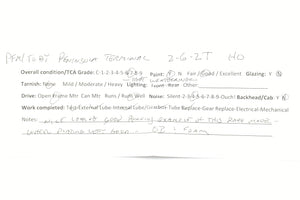 PENINSULA TERMINAL 2-6-2T HO
Overall condition/TCA Grade: C-1-2-3-4-5-6-7-8-9 Paint: N Fair / Good / Excellent Glazing: Y N
Tarnish: None Mild / Moderate / Heavy Lighting: Front Rear Other
Drive: Open Frame Mtr Can Mtr Runs / Noise: Silent-2-3-4-5-6-7-8-9-Ouch! Backhead/Cab: Y N
Work completed: External Lube-Internal Lube/Grease- Tube Replace-Gear Replace-Electrical-Mechanical
Notes: GOOD RUNNING EXAMPLE OF THIS RARE MODEL
OB & FOAM